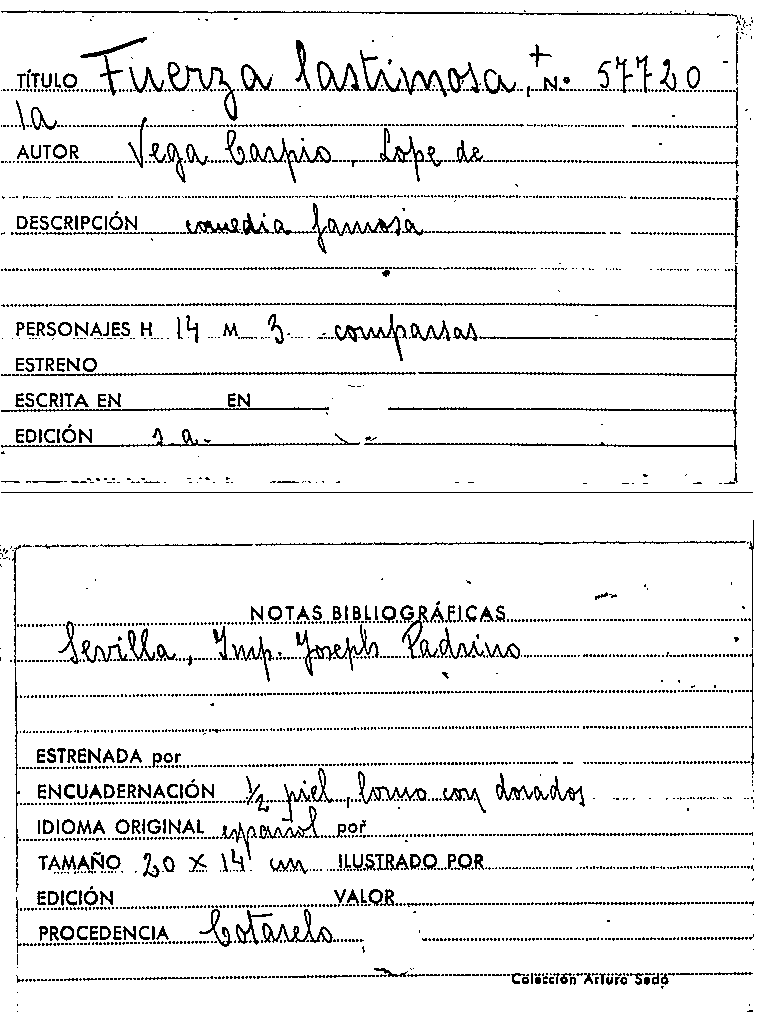 TÍTULO Fuerza lastimosa, + Nº 57720
la
AUTOR Vega Carpio, Lope de
DESCRIPCIÓN comedia famosa
PERSONAJES H 14 M 3 comparsas
ESTRENO
ESCRITA EN EN
EDICIÓN s. a.
NOTAS BIBLIOGRÁFICAS
Sevilla, Imp. Joseph Padrino
ESTRENADA por
ENCUADERNACIÓN 1/2 piel, lomo con dorados
IDIOMA ORIGINAL español por
TAMAÑO 20 X 14 cm ILUSTRADO POR
EDICIÓN VALOR
PROCEDENCIA Cotarelo
Colección Arturo Sedó